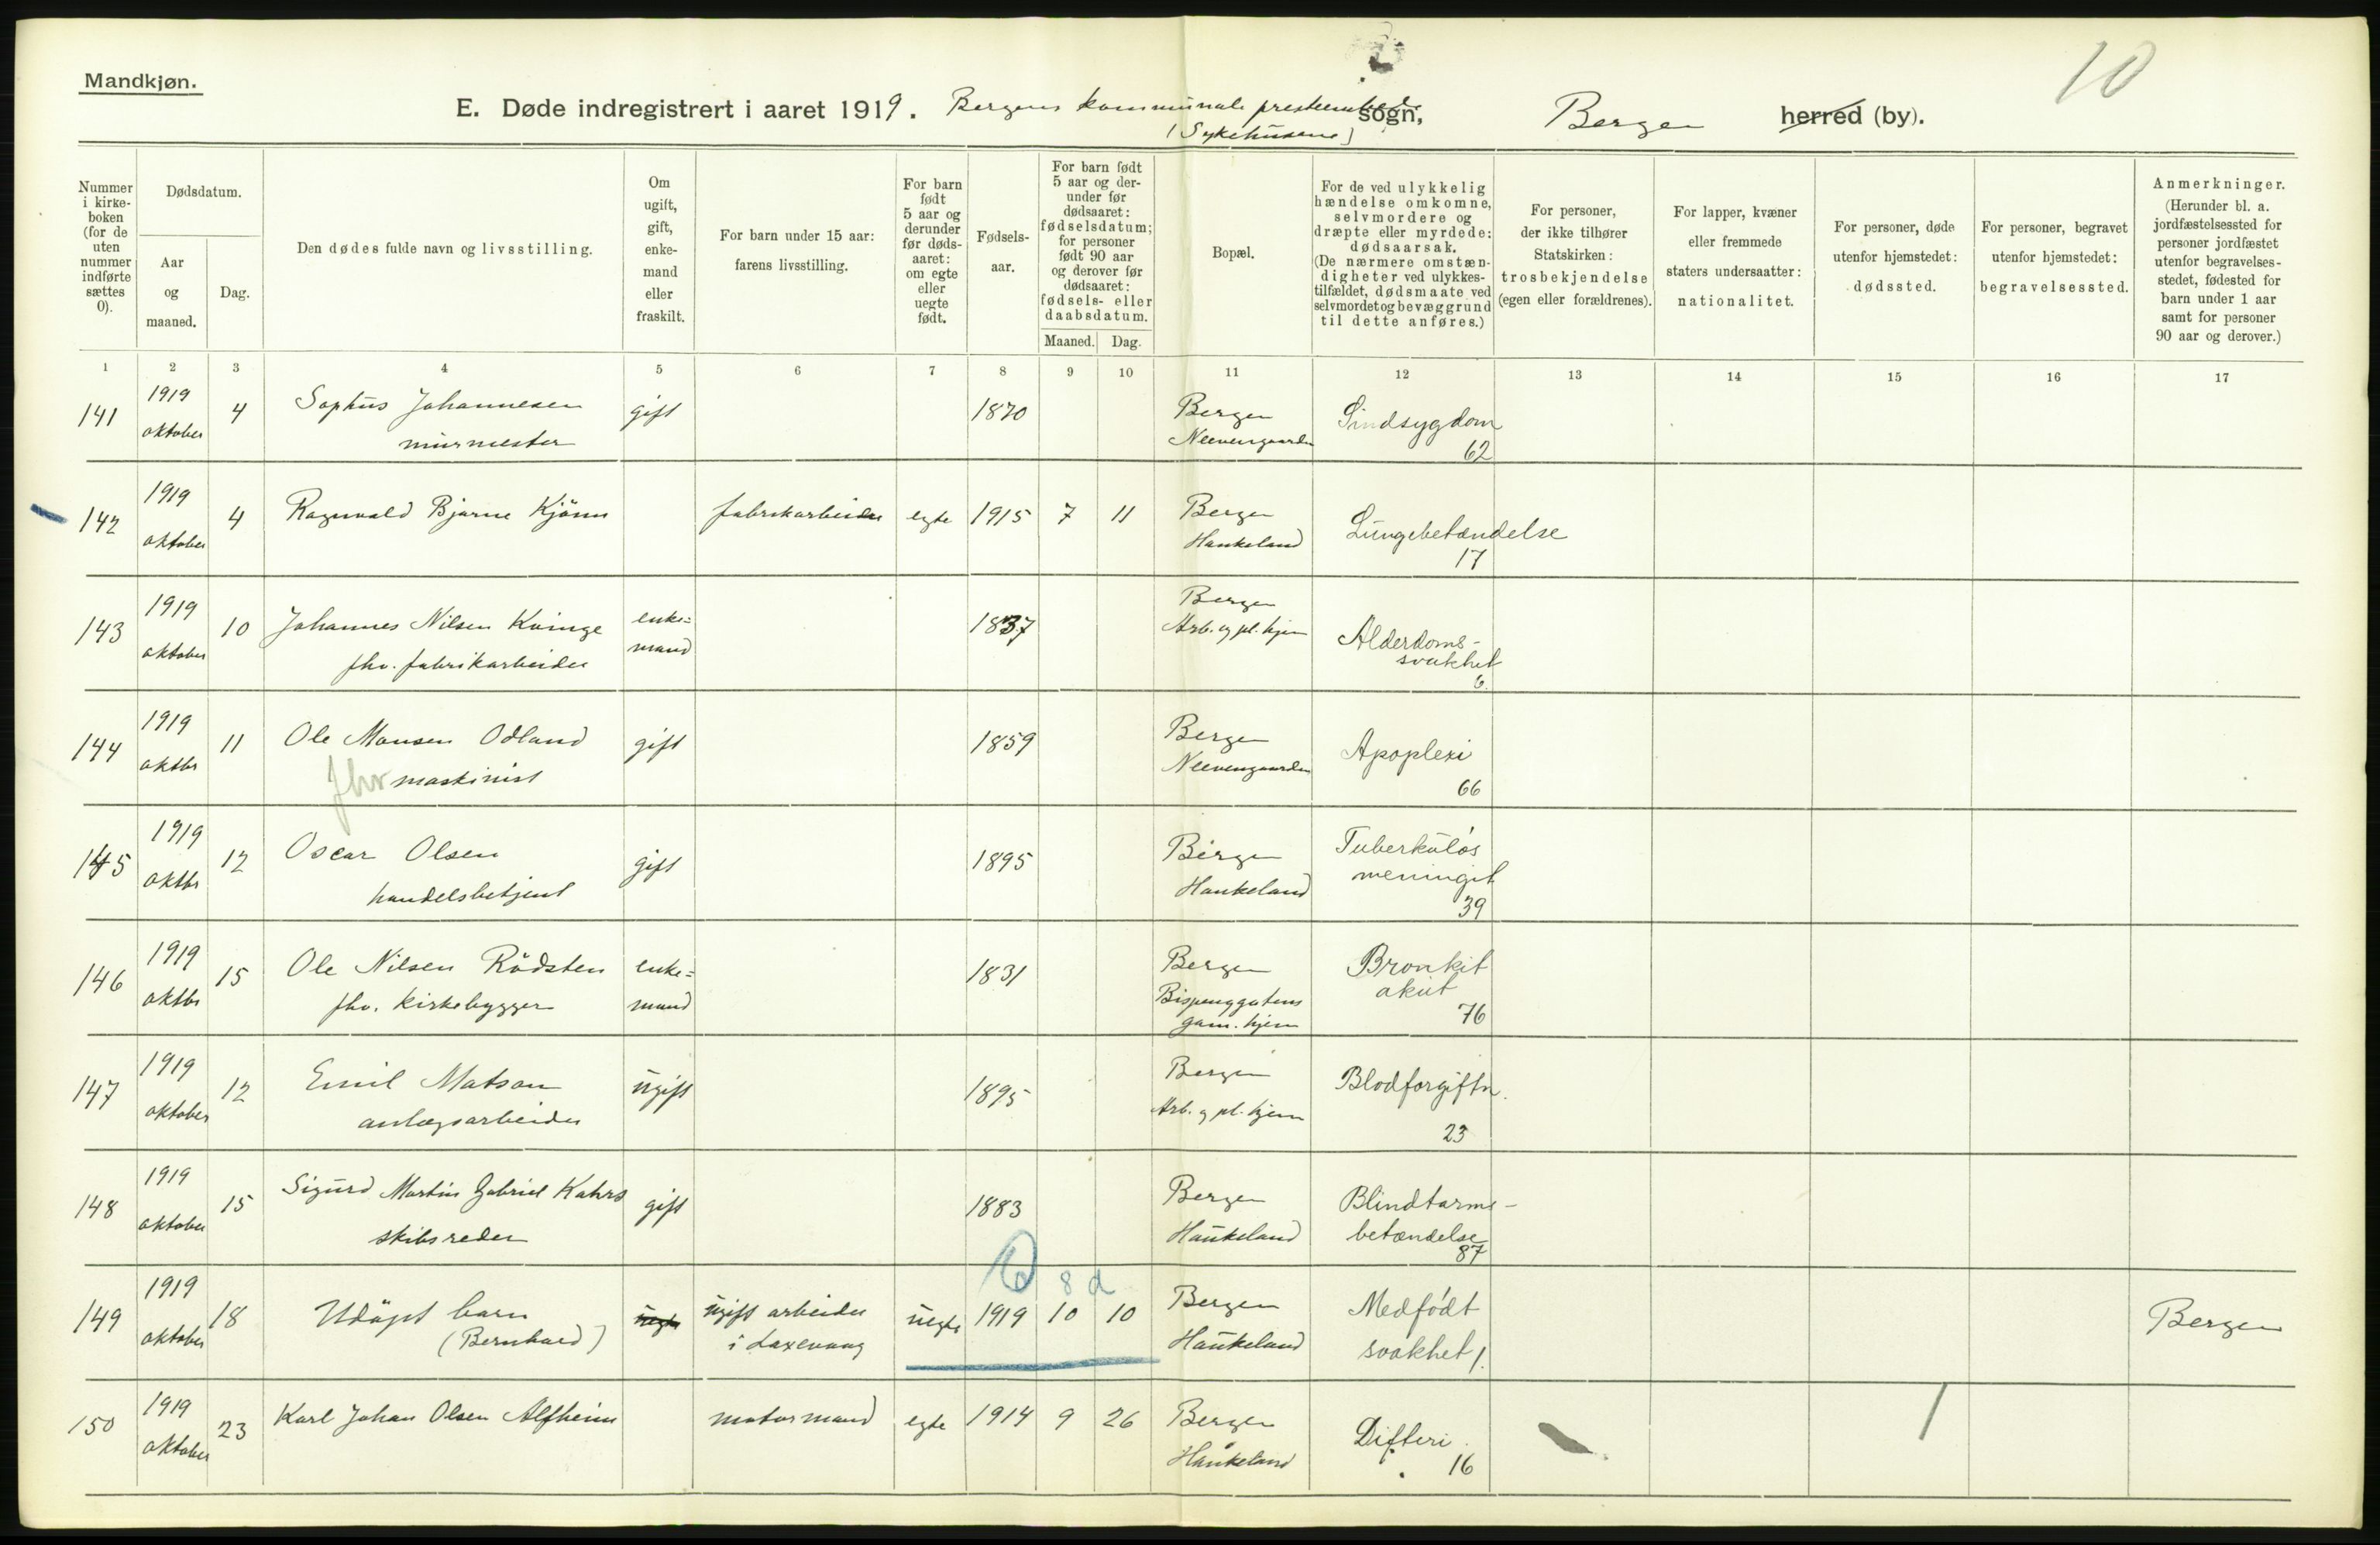 Mandkjøn.
10
E. Døde indregistrert i aaret 1919. Bergens kommunale presteembede sogn, Bergen herred (by).
(Sykehusene)
Nummer i kirke-boken (for de uten nummer indførte sættes 0).
Dødsdatum.
Aar og maaned.
Dag.
Den dødes fulde navn og livsstilling.
Om ugift, gift, enke-mand eller fraskilt.
For barn under 15 aar: farens livsstilling.
For barn født 5 aar og derunder før døds-aaret: om egte eller uegte født.
Fødsels-aar.
For barn født 5 aar og der-under før dødsaaret: fødselsdatum; for personer født 90 aar og derover før dødsaaret: fødsels- eller daabsdatum.
Maaned. Dag.
Bopæl.
For de ved ulykkelig hændelse omkomne, selvmordere og dræpte eller myrdede: dødsaarsak. (De nærmere omstæn-digheter ved ulykkes-tilfældet, dødsmaate ved selvmordet og bevæggrund til dette anføres.)
For personer, der ikke tilhører Statskirken: trosbekjendelse (egen eller forældrenes).
For lapper, kvæner eller fremmede staters undersaatter: nationalitet.
For personer, døde utenfor hjemstedet: dødssted.
For personer, begravet utenfor hjemstedet: begravelsessted.
Anmerkninger. (Herunder bl. a. jordfæstelsessted for personer jordfæstet utenfor begravelses-stedet, fødested for barn under 1 aar samt for personer 90 aar og derover.)
1 2 3 4 5 6 7 8 9 10 11 12 13 14 15 16 17
141 1919 oktober 4 Sophus Johannesen murmester gift 1870 Bergen Neevengaarden Sindsygdom 62
142 1919 oktober 4 Ragnvald Bjarne Kjönn fabrikarbeider egte 1915 7 11 Bergen Haukeland Lungebetændelse 17
143 1919 oktober 10 Johannes Nilsen Kvinge fhv. fabrikarbeider enke=mand 1837 Bergen Arb. og pl. hjem Alderdoms-svakhet 6.
144 1919 oktbr 11 Ole Monsen Odland fhv maskinist gift 1859 Bergen Neevengaarden Apoplexi 66
145 1919 oktbr 12 Oscar Olsen handelsbetjent gift 1895 Bergen Haukeland Tuberkuløs meningit 39
146 1919 oktbr 15 Ole Nilsen Rödsten fhv. kirkebygger enke=mand 1831 Bergen Bispenggatens gam. hjem Bronkit akut 76
147 1919 oktober 12 Emil Matson anlægsarbeider ugift 1895 Bergen Arb. og pl. hjem Blodforgiftn. 23
148 1919 oktober 15 Sigurd Martin Gabriel Kahrs skibsreder gift 1883 Bergen Haukeland Blindtarms-betændelse 87
8 d
149 1919 oktober 18 Udöpt barn (Bernhard) uegte ugift arbeider i Laxevaag uegte 1919 10 10 Bergen Haukeland Medfødt svakhet 1. Bergen
150 1919 oktober 23 Karl Johan Olsen Alfheim motormand egte 1914 9 26 Bergen Haukeland Difteri. 16